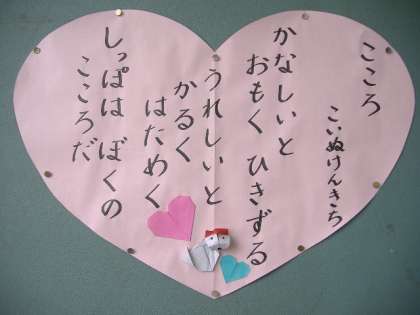 こころ
こいぬけんきち
かなしいと
おもく ひきずる
うれしいと
かるく
はためく
しっぽは ぼくの
こころだ